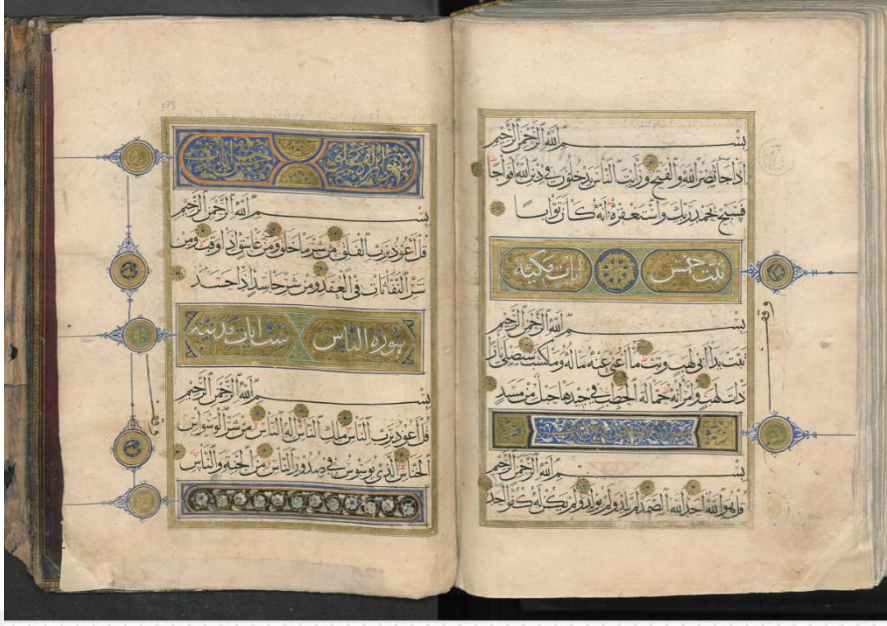 بسم الله الرحمن الرحيم
اذا جا نصر الله والفتح ورايت الناس يدخلون في دين الله افواجا
فسبح بحمد ربك واستغفره انه كان توابا
تبت خمس ايات مكية
بسم الله الرحمن الرحيم
تبت يدا ابي لهب وتب ما اغنى عنه ماله وما كسب سيصلى نارا
ذات لهب وامراته حمالة الحطب في جيدها حبل من مسد
بسم الله الرحمن الرحيم
قل هو الله احد الله الصمد لم يلد ولم يولد ولم يكن له كفوا احد
وقف
سورة الفلق خمس ايات
بسم الله الرحمن الرحيم
قل اعوذ برب الفلق من شر ما خلق ومن غاسق اذا وقب ومن
شر النفاثات في العقد ومن شر حاسد اذا حسد
سورة الناس ست ايات مدنية
بسم الله الرحمن الرحيم
قل اعوذ برب الناس ملك الناس اله الناس من شر الوسواس
الخناس الذي يوسوس في صدور الناس من الجنة والناس